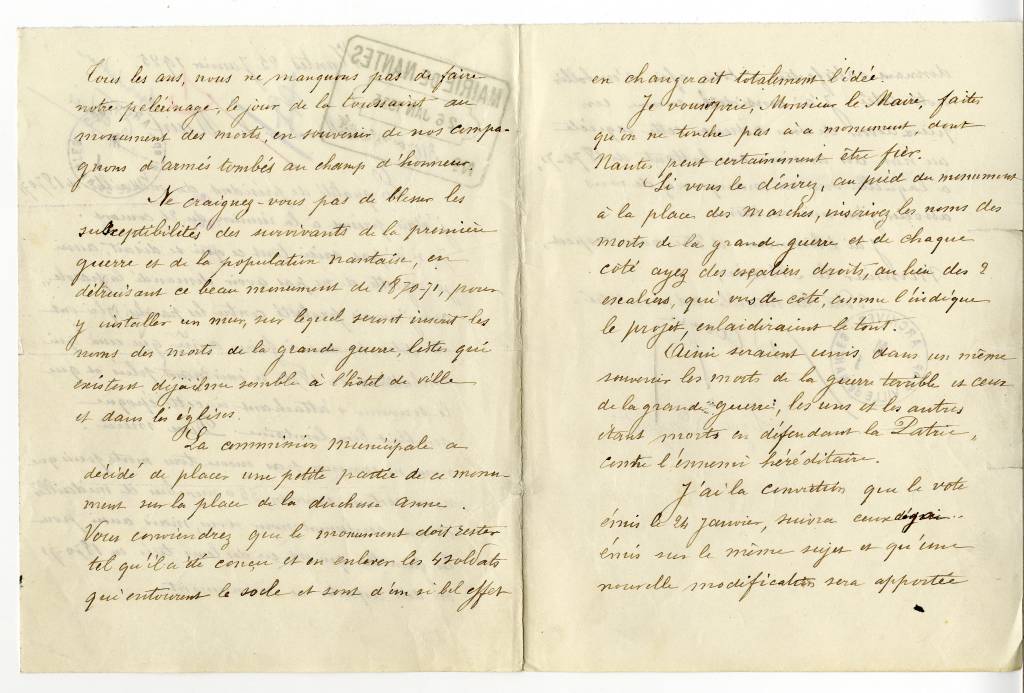 Tous les ans, nous ne manquons pas de faire
notre pélerinage, le jour de la toussaint au
monument des morts, en souvenir de nos compa-
gnons d'armes tombés au champ d'honneur.
Ne craignez-vous pas de blesser les
susceptibilités des survivants de la première
guerre et de la population nantaise, en
détruisant ce beau monument de 1870-71, pour
y installer un mur, sur lequel seront inscrit les
noms des morts de la grande guerre, listes qui
existent déjà il me semble à l'hôtel de ville
et dans les églises.
La commission municipale a
décidé de placer une petite partie de ce monu-
ment sur la place de la duchesse anne.
Vous conviendrez que le monument doit rester
tel qu'il a été conçu et en enlever les 4 soldats
qui entourent le socle et sont d'un si bel effet
en changerait totalement l'idée.
Je vous prie, Monsieur le Maire, faites
qu'on ne touche pas à monument, dont
Nantes peut certainement être fier.
Si vous le désirez, au pied du monument
à la place des marches, inscrivez les noms des
morts de la grande guerre et de chaque
côté ayez des escaliers droits, au lieu des 2
escaliers, qui vus de côté, comme l'indique
le projet, enlaidiraient le tout.
Ainsi seraient unis dans un même
souvenir les morts de la guerre terrible et ceux
de la grande guerre, les uns et les autres
étant morts en défendant la Patrie,
contre l'ennemi héréditaire.
J'ai la conviction que le vote
émis le 24 Janvier, suivra ceux déjà
émis sur le même sujet et qu'une
nouvelle modification sera apportée
MAIRIE DE NANTES
26 JAN